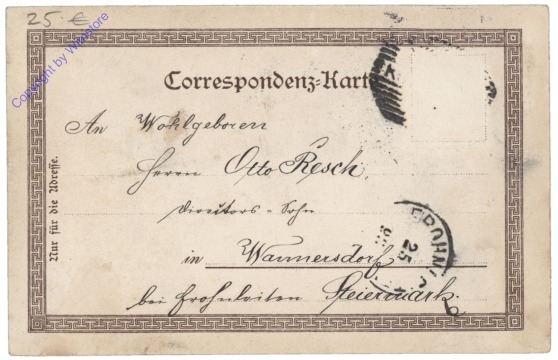 25 €
Copyright by Wienstore
Correspondenz-Karte
An Wohlgeboren
Herrn Otto Resch
Directors-Sohn
in Wannersdorf
bei Frohnleiten Steiermark.
Nur für die Adresse.
FROHNL
25